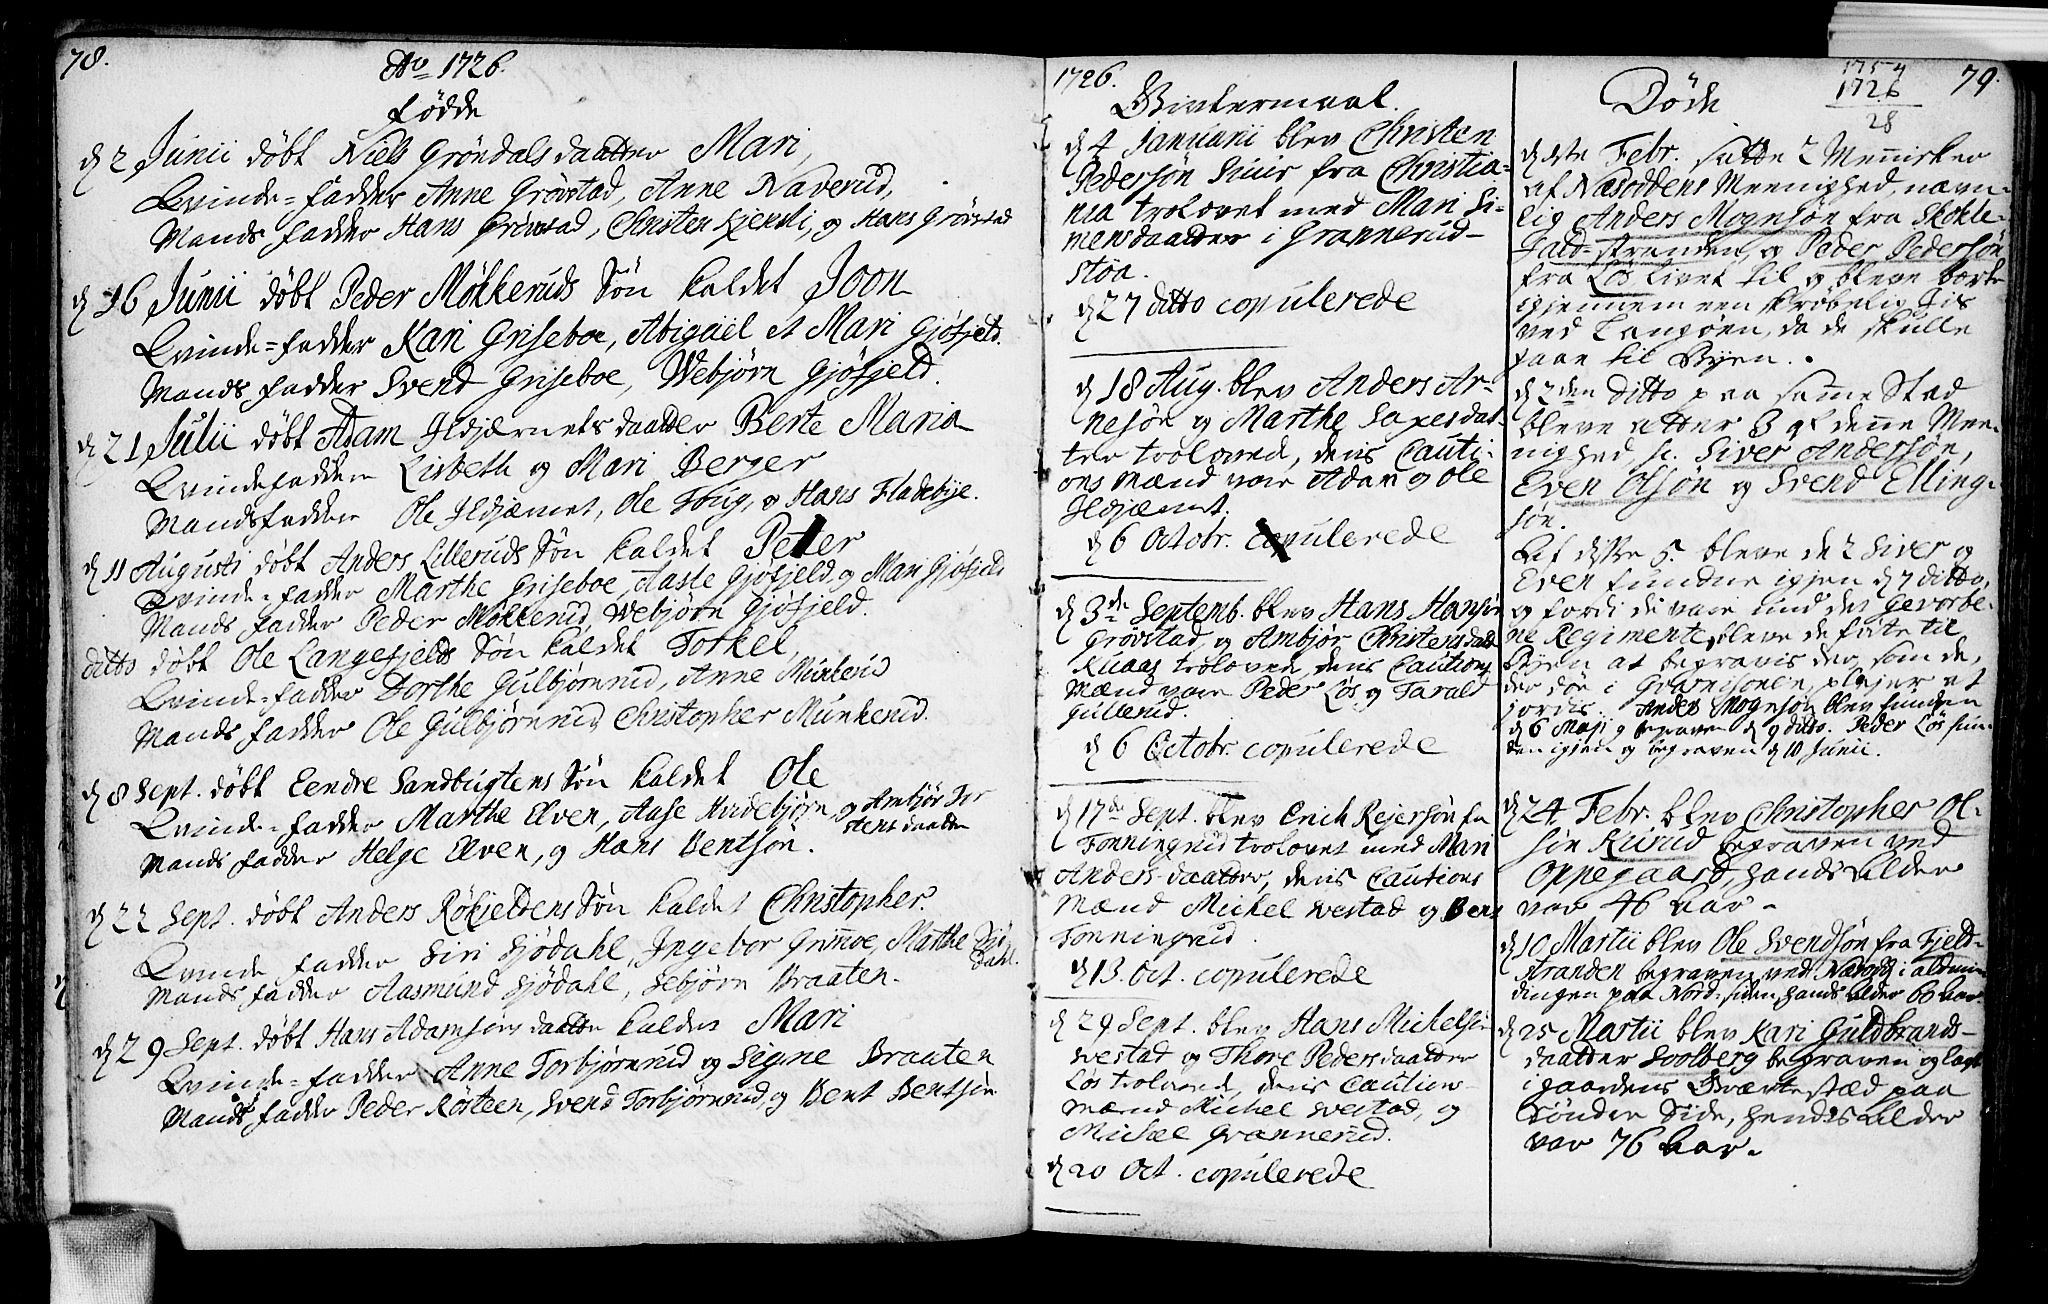 78.
Ao 1726.
Fødde
d 2 Junii døbt Niels Grøndals daatter Mari,
Qvinde=fadder Anne Grøvstad, Anne Naverud,
Mands fadder Hans Grøvstad, Christen Hjemli, og Hans Grøvstad
d 16 Junii døbt Peder Møkkeruds Søn kaldet Joon
Qvinde=fadder Kari Griseboe, Abigaël et Mari Gjøfjeld.
Mands fadder Svend Griseboe, Webjørn Gjøfjeld.
d 21 Julii døbt Adam Ildjærnets daatter Berte Maria
Qvindefadder Lisbeth og Mari Berger
Mandsfadder Ole Ildjærnet, Ole Toug, og Hans Fladebye.
d 11 Augusti døbt Anders Lilleruds Søn kaldet Peder
Qvinde=fadder Marthe Griseboe, Aaste Gjøfjeld, og Mari Gjøfjeld
Mands fadder Peder Møkkerud, Webjørn Gjøfjeld.
ditto døbt Ole Langefjelds Søn kaldet Torkel,
Qvinde=fadder Dorthe Gulbjørnrud, Anne Munkerud
Mands fadder Ole Gulbjørnrud Christopher Munkerud.
d 8 Sept. døbt Eendre Sandbugtens Søn kaldet Ole
Qvinde=fadder Marthe Elven, Aase Hvidebjørn, og Ambjør Tor
stens daatter
Mands fadder Helge Elven, og Hans Bentsøn.
d 22 Sept. døbt Anders Røkjeldens Søn kaldet Christopher.
Qvinde fadder Siri Sjødahl, Ingebor Grimoe, Marthe Sjø
dahl.
Mands fadder Aasmund Sjødahl, Sebjørn Braaten.
d 29 Sept. døbt Hans Adamsøns daatter kaldet Mari
Qvinde=fadder Anne Torbjørnrud og Signe Braaten
Mands fadder Peder Røsteen, Svend Torbjørnrud, og Bent Bentsøn
1726.
Givtermaal.
d 4 Januarii blev Christen
Pedersøn Sinir fra Christia=
nia trolovet med Mari Si=
mensdaatter i Grannerud=
støa.
d 27 ditto copulerede
d 18 Aug. blev Anders Ar=
nesøn og Marthe Saxesdat=
ter trolovede, deris Cauti=
ons mænd vare Adam og Ole
Ildjærnet.
d 6 Octobr. copulerede
d 3de Septemb. blev Hans Hansøn
Grøvstad, og Ambjør Christensdaatt
Knaas trolovede, deris Cautions
Mænd vare Peder Løs og Tarald
Gullerud.
d 6 Octobr. copulerede
d 17de Sept. blev Erich Rejersøn fra
Tonningrud trolovet med Mari
Anders daatter, deris Cautions
Mænd Michel Westad og Bent
Tonningrud.
d 13 Oct. copulerede
d 29 Sept. blev Hans Michelsøn
Westad og Thore Pedersdaatter
Løs trolovede, deris Cautions
Mænd Michel Westad, og
Michel Grannerud.
d 20 Oct. copulerede
Døde
1754
1726
28
79.
d 1ste Febr. satte 2 Mennisker
af Næsoddens Meenighed, nævn=
lig Anders Mognsøn fra Skokle=
fald=stranden, og Peder Pedersøn
fra Løs Livet til og bleve borte
igjennem een skrøbelig Iis
ved Langøen, da de skulle
faare til Byen.
d 2den ditto paa same Stad
bleve atter 3 af dene Mee=
nighed sc. Siver Andersøn,
Even Olsøn og Svend Elling=
søn.
Af disse 5 bleve de 2 Siver og
Even fundne igjen d 7 ditto,
og fordi de vare und det Gevorbe=
ne Regimente, bleve de førte til
Byen at begravis der, som de,
der døe i Guarnisonen, plejer at
jordis. Anders Mognsøn blev funden
d 6 Maji og begraven d 9 ditto. Peder Løs fun=
den igjen og begraven d 10 Junii.
d 24 Febr. blev Christopher Ol=
søn Rurud begraven ved
Oppegaard, hands Alder
var 46 Aar.
d 10 Martii blev Ole Svendsøn fra Fjeld=
stranden begraven ved Næsodd i almin=
dingen paa Nord=siden, hands Alder 60 Aar.
d 25 Martii blev Kari Guldbrands=
daatter Soolberg begraven og lagt
i gaardens stæd paa
Søndre Side, hendes Alder
var 76 Aar.